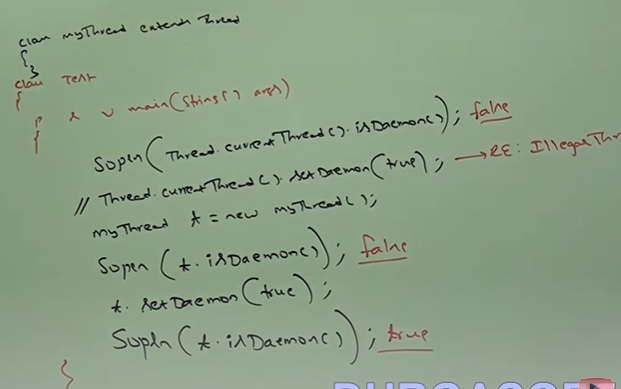 class myThread extends Thread
{
}
class Test
{
p s v main(String[] args)
{
Sopln(Thread.currentThread().isDaemon()); false
// Thread.currentThread().setDaemon(true); → RE: IllegalThr
myThread t = new myThread();
Sopln(t.isDaemon()); false
t.setDaemon(true);
Sopln(t.isDaemon()); true
}